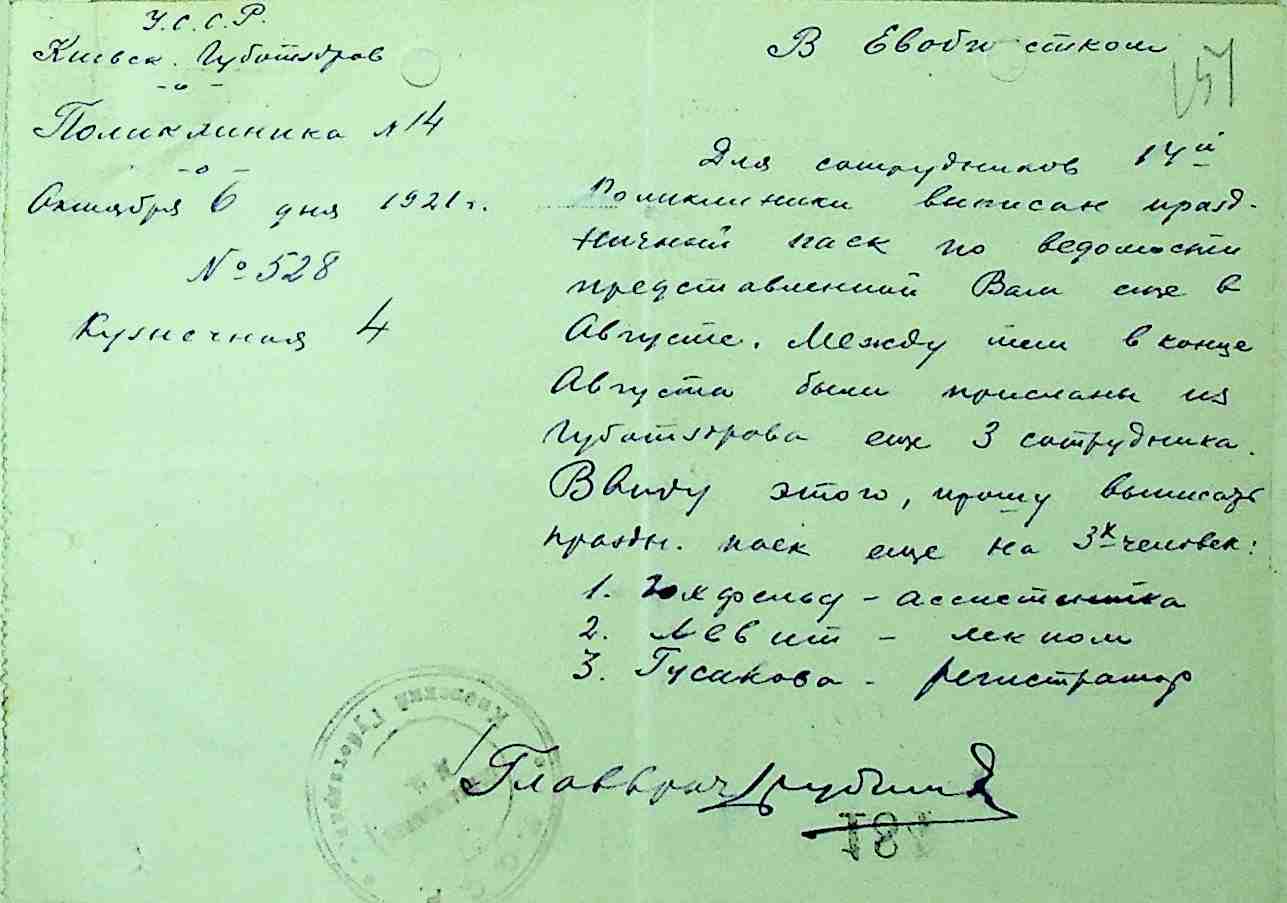 У.С.С.Р.
Киевск. Губотздрав
Поликлиника № 14
Октября 6 дня 1921 г.
№ 528
Кузнечная 4
В Евобщестком
157
Для сотрудников 14й
Поликлиники выписан празд-
ничный паек по ведомости
представленной Вам еще в
Августе. Между тем в конце
Августа были присланы из
Губотздрава еще 3 сотрудника.
Ввиду этого, прошу выписать
праздн. паек еще на 3х человек:
1. - ассистентка
2. Левит - лекпом
3. Гусакова - регистратор
Главврач
Киевский Губотздрав
181